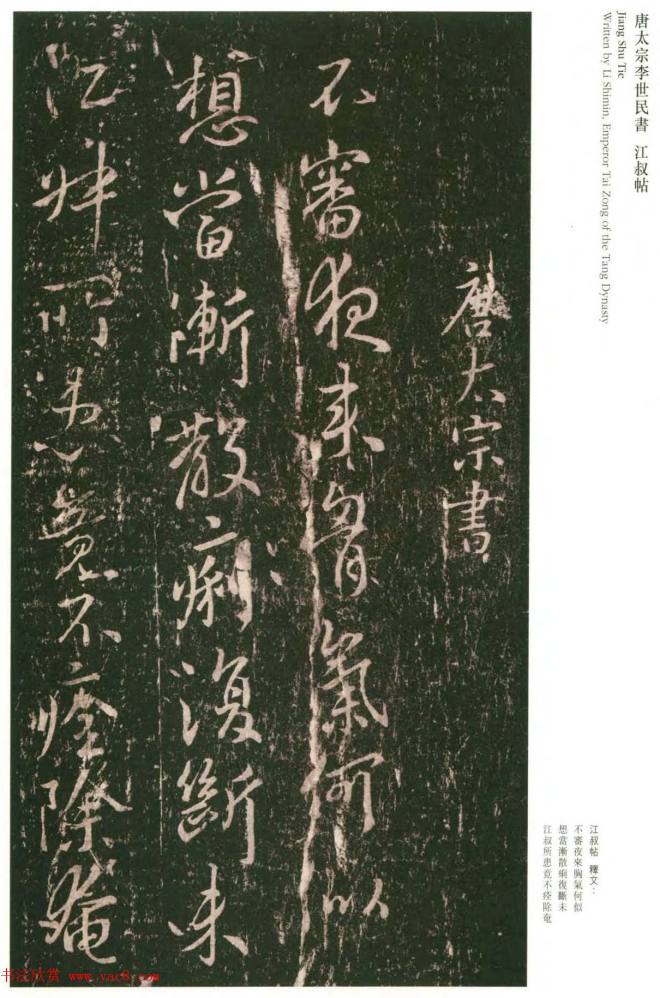 唐太宗李世民書 江叔帖
Jiang Shu Tie
Written by Li Shimin, Emperor Tai Zong of the Tang Dynasty
唐太宗書
不審夜来胷氣何以
想當漸散痢復斷未
江叔所患竟不痊除奄
江叔帖 釋文：
不審夜來胸氣何似
想當漸散痢復斷未
江叔所患竟不痊除奄
书法欣赏 www.yac8.com